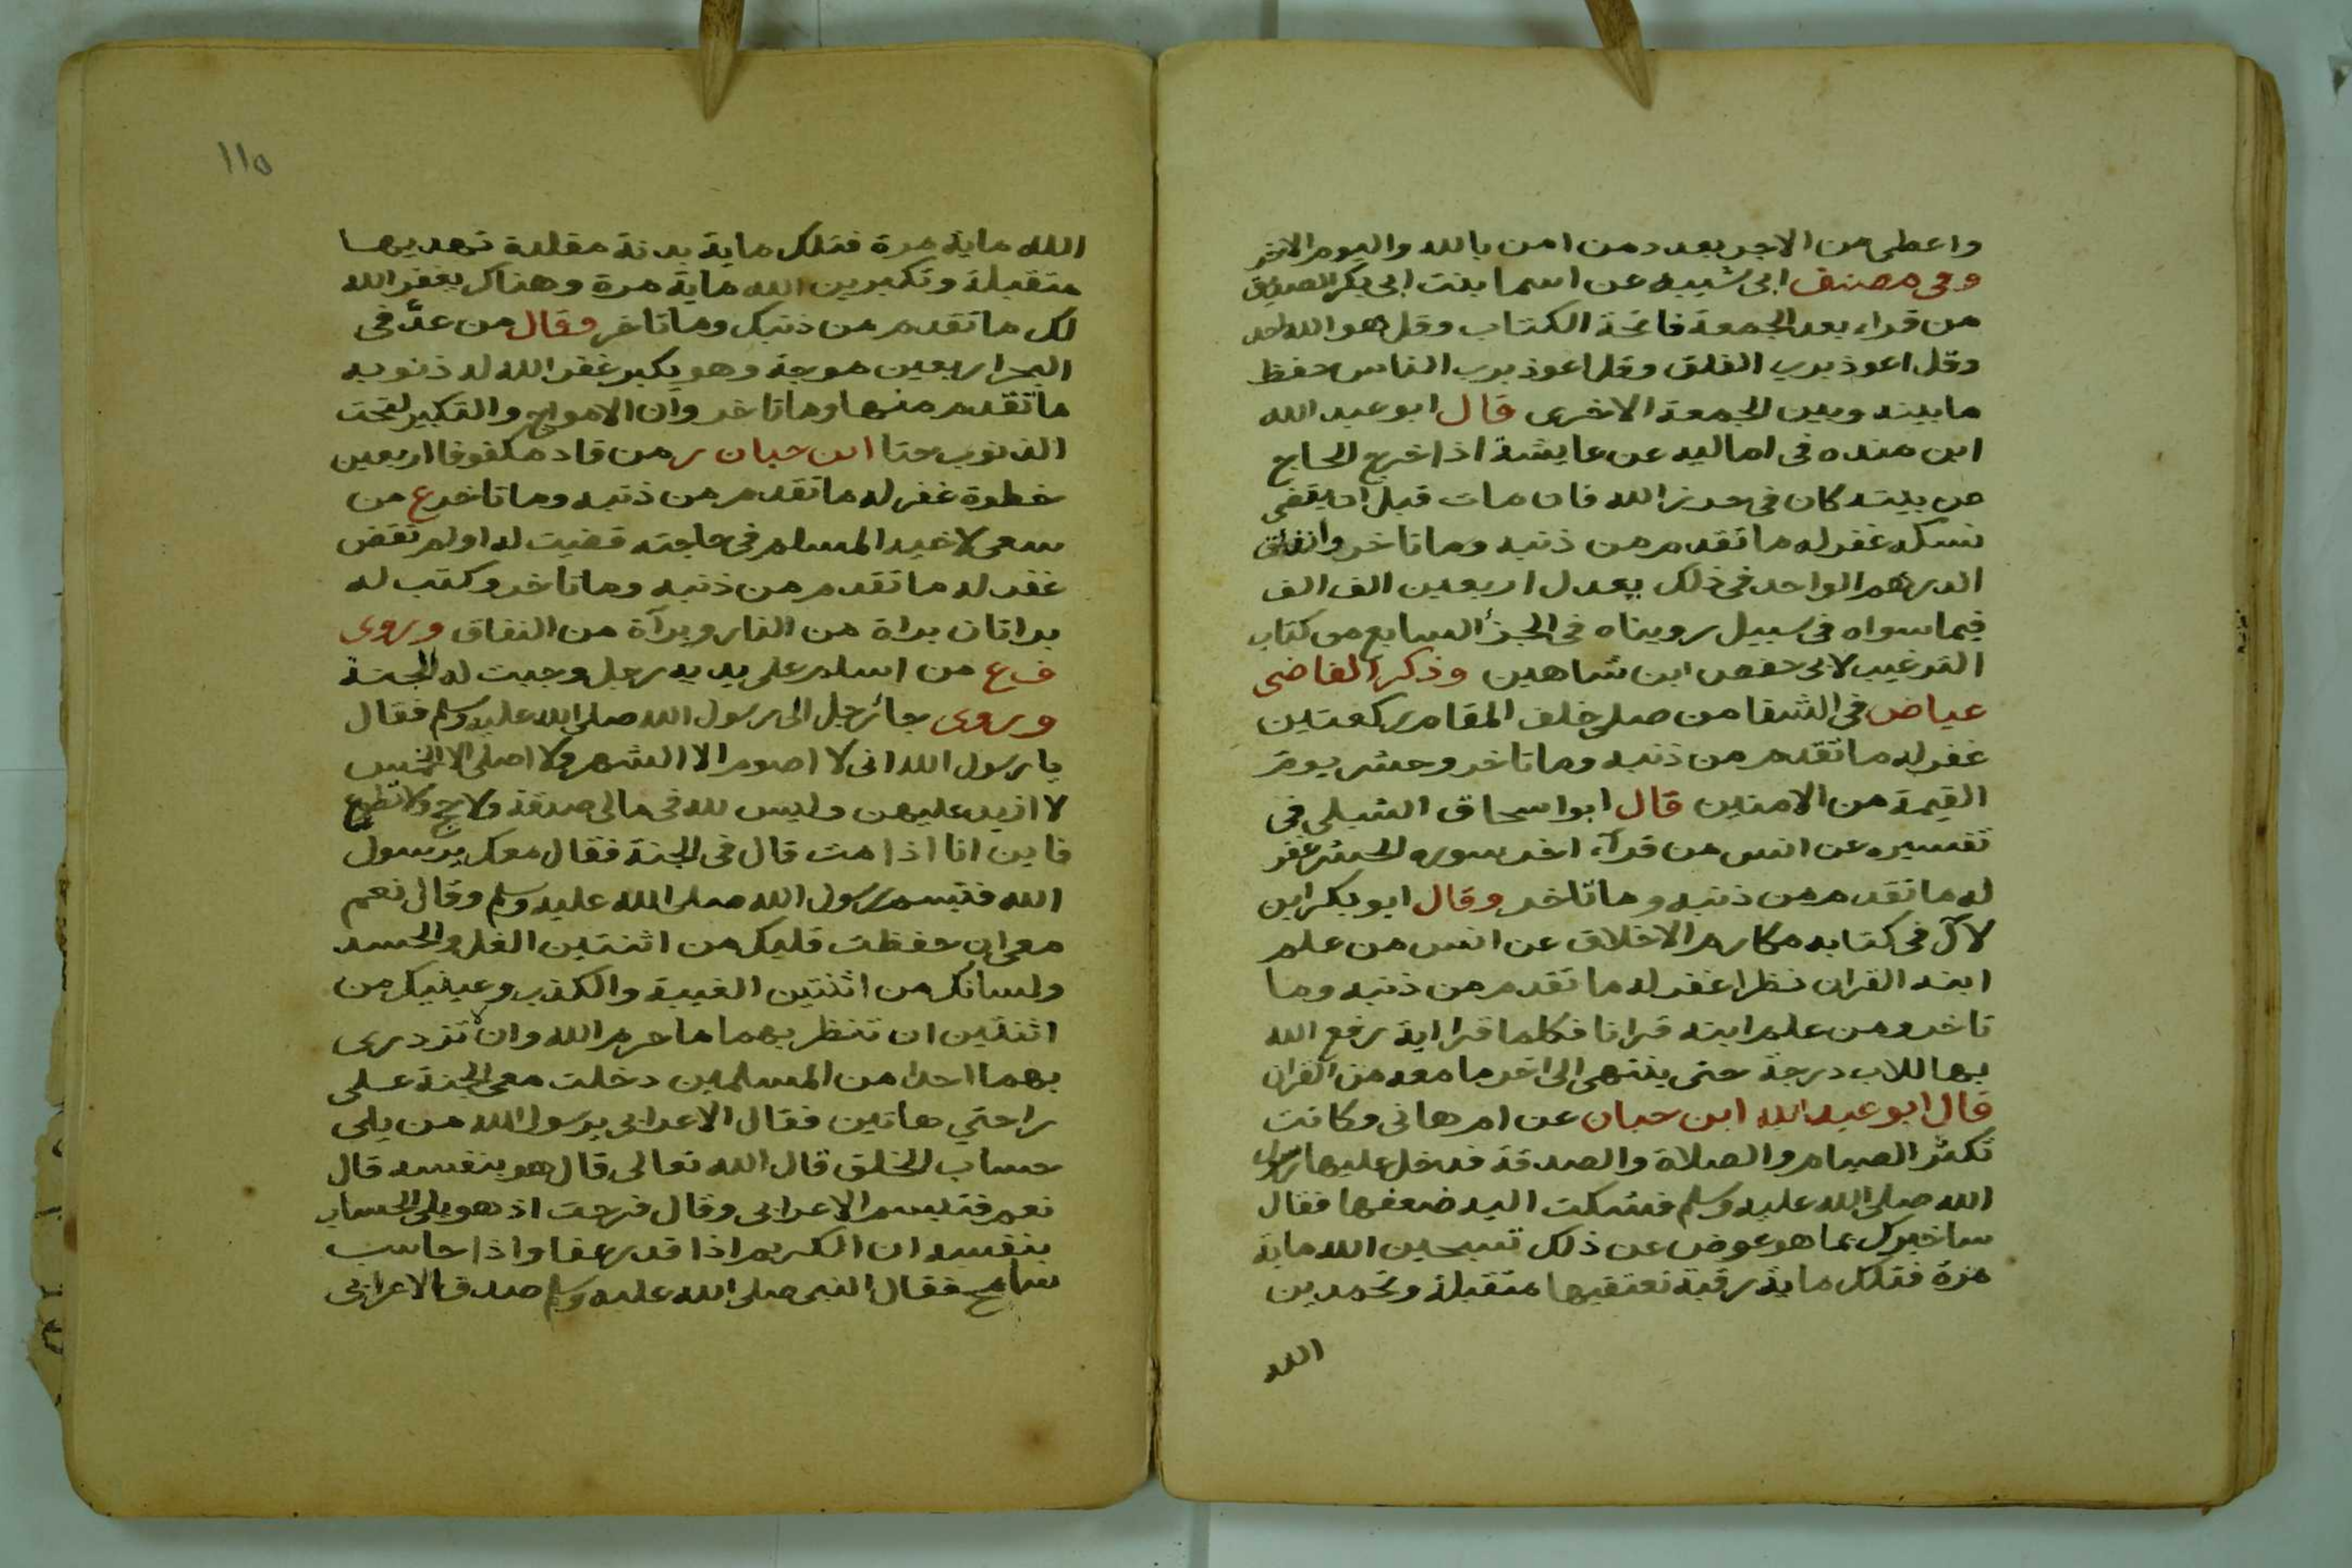 واعطى من الاجر بعدد من امن بالله واليوم الاخر
وفى مصنف ابى شيبه عن اسما بنت ابى بكر الصديق
من قراء بعد الجمعة فاتحة الكتاب وقل هو الله احد
وقل اعوذ برب الفلق وقل اعوذ برب الناس حفظ
ما بينه وبين الجمعة الاخرى قال ابو عبد الله
ابن منده فى اماليه عن عايشة اذا خرج الحاج
من بيته كان فى حرز الله فان مات قبل ان يقضى
نسكه غفر له ما تقدم من ذنبه وما تاخر وانفاق
الدرهم الواحد فى ذلك يعدل اربعين الف الف
فيما سواه فى سبيل رويناه فى الجزأ السابع من كتاب
الترغيب لابى حفص ابن شاهين وذكر القاضى
عياض فى الشفا من صلى خلف المقام ركعتين
غفر له ما تقدم من ذنبه وما تاخر وحشر يوم
القيمة من الامنين قال ابو اسحاق الثبلى فى
تفسيره عن انس من قرآء اخر سوره الحشر غفر
له ما تقدم من ذنبه وما تاخر وقال ابو بكر ابن
لآل فى كتابه مكارم الاخلاق عن انس من علم
ابنه القران نظرا غفر له ما تقدم من ذنبه وما
تاخر ومن علم ابنه قرانا فكلما قرا اية رفع الله
بها للاب درجة حتى ينتهى الى اخر ما معه من القران
قال ابو عبد الله ابن حبان عن ام هانى وكانت
تكثر الصيام والصلاة والصدقة فدخل عليها رسول
الله صلى الله عليه وسلم فشكت اليه ضعفها فقال
ساخبرك بما هو عوض عن ذلك تسبحين الله ماية
مرة فتلك ماية رقبة تعتقيها متقبلة وتحمدين
الله
١١٥
الله ماية مرة فتلك ماية بدنة مقلدة تهديها
متقبلة وتكبرين الله ماية مرة وهناك يغفر الله
لك ما تقدم من ذنبك وما تاخر وقال من عدّ فى
البحر اربعين موجة وهو يكبر غفر الله له ذنوبه
ما تقدم منها وما تاخر وان الامواج والتكبير لتحت
الذنوب حتا ابن حبان ر من قاد مكفوفا اربعين
خطوة غفر له ما تقدم من ذنبه وما تاخر ع من
سعى لاخيه المسلم فى حاجته قضيت له او لم تقض
غفر له ما تقدم من ذنبه وما تاخر وكتب له
براتان براة من النار وبرآة من النفاق وروى
ف ع من اسلم على يديه رجل وجبت له الجنة
وروى جائ رجل الى رسول الله صلى الله عليه وسلم فقال
يا رسول الله انى لا اصوم الا الشهر ولا اصلى الا الخمس
لا ازيد عليهن وليس لله فى مالى صدقة ولا حج ولا تطوع
فاين انا اذا مت قال فى الجنة فقال معك يرسول
الله فتبسم رسول الله صلى الله عليه وسلم وقال نعم
معى ان حفظت قلبك من اثنتين الغل والحسد
ولسانك من اثنتين الغيبة والكذب وعينيك من
اثنتين ان تنظر بهما ما حرم الله وان تزدرى
بهما احدا من المسلمين دخلت معى الجنة على
راحتي هاتين فقال الاعرابى يرسول الله من يلى
حساب الخلق قال الله تعالى قال هو بنفسه قال
نعم فتبسم الاعرابى وقال فرحت اذ هو يلى الحساب
بنفسه ان الكريم اذا قدر عفا واذا حاسب
سامح فقال النبى صلى الله عليه وسلم صدق الاعرابى